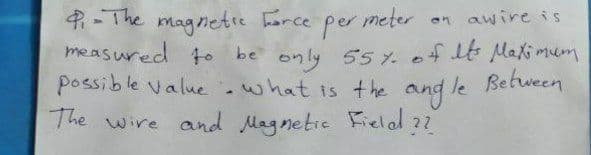 Q1 - The magnetic Force per meter on a wire is
measured to be only 55 % of Its Maximum
possible value . what is the angle Between
The wire and Magnetic Field ??